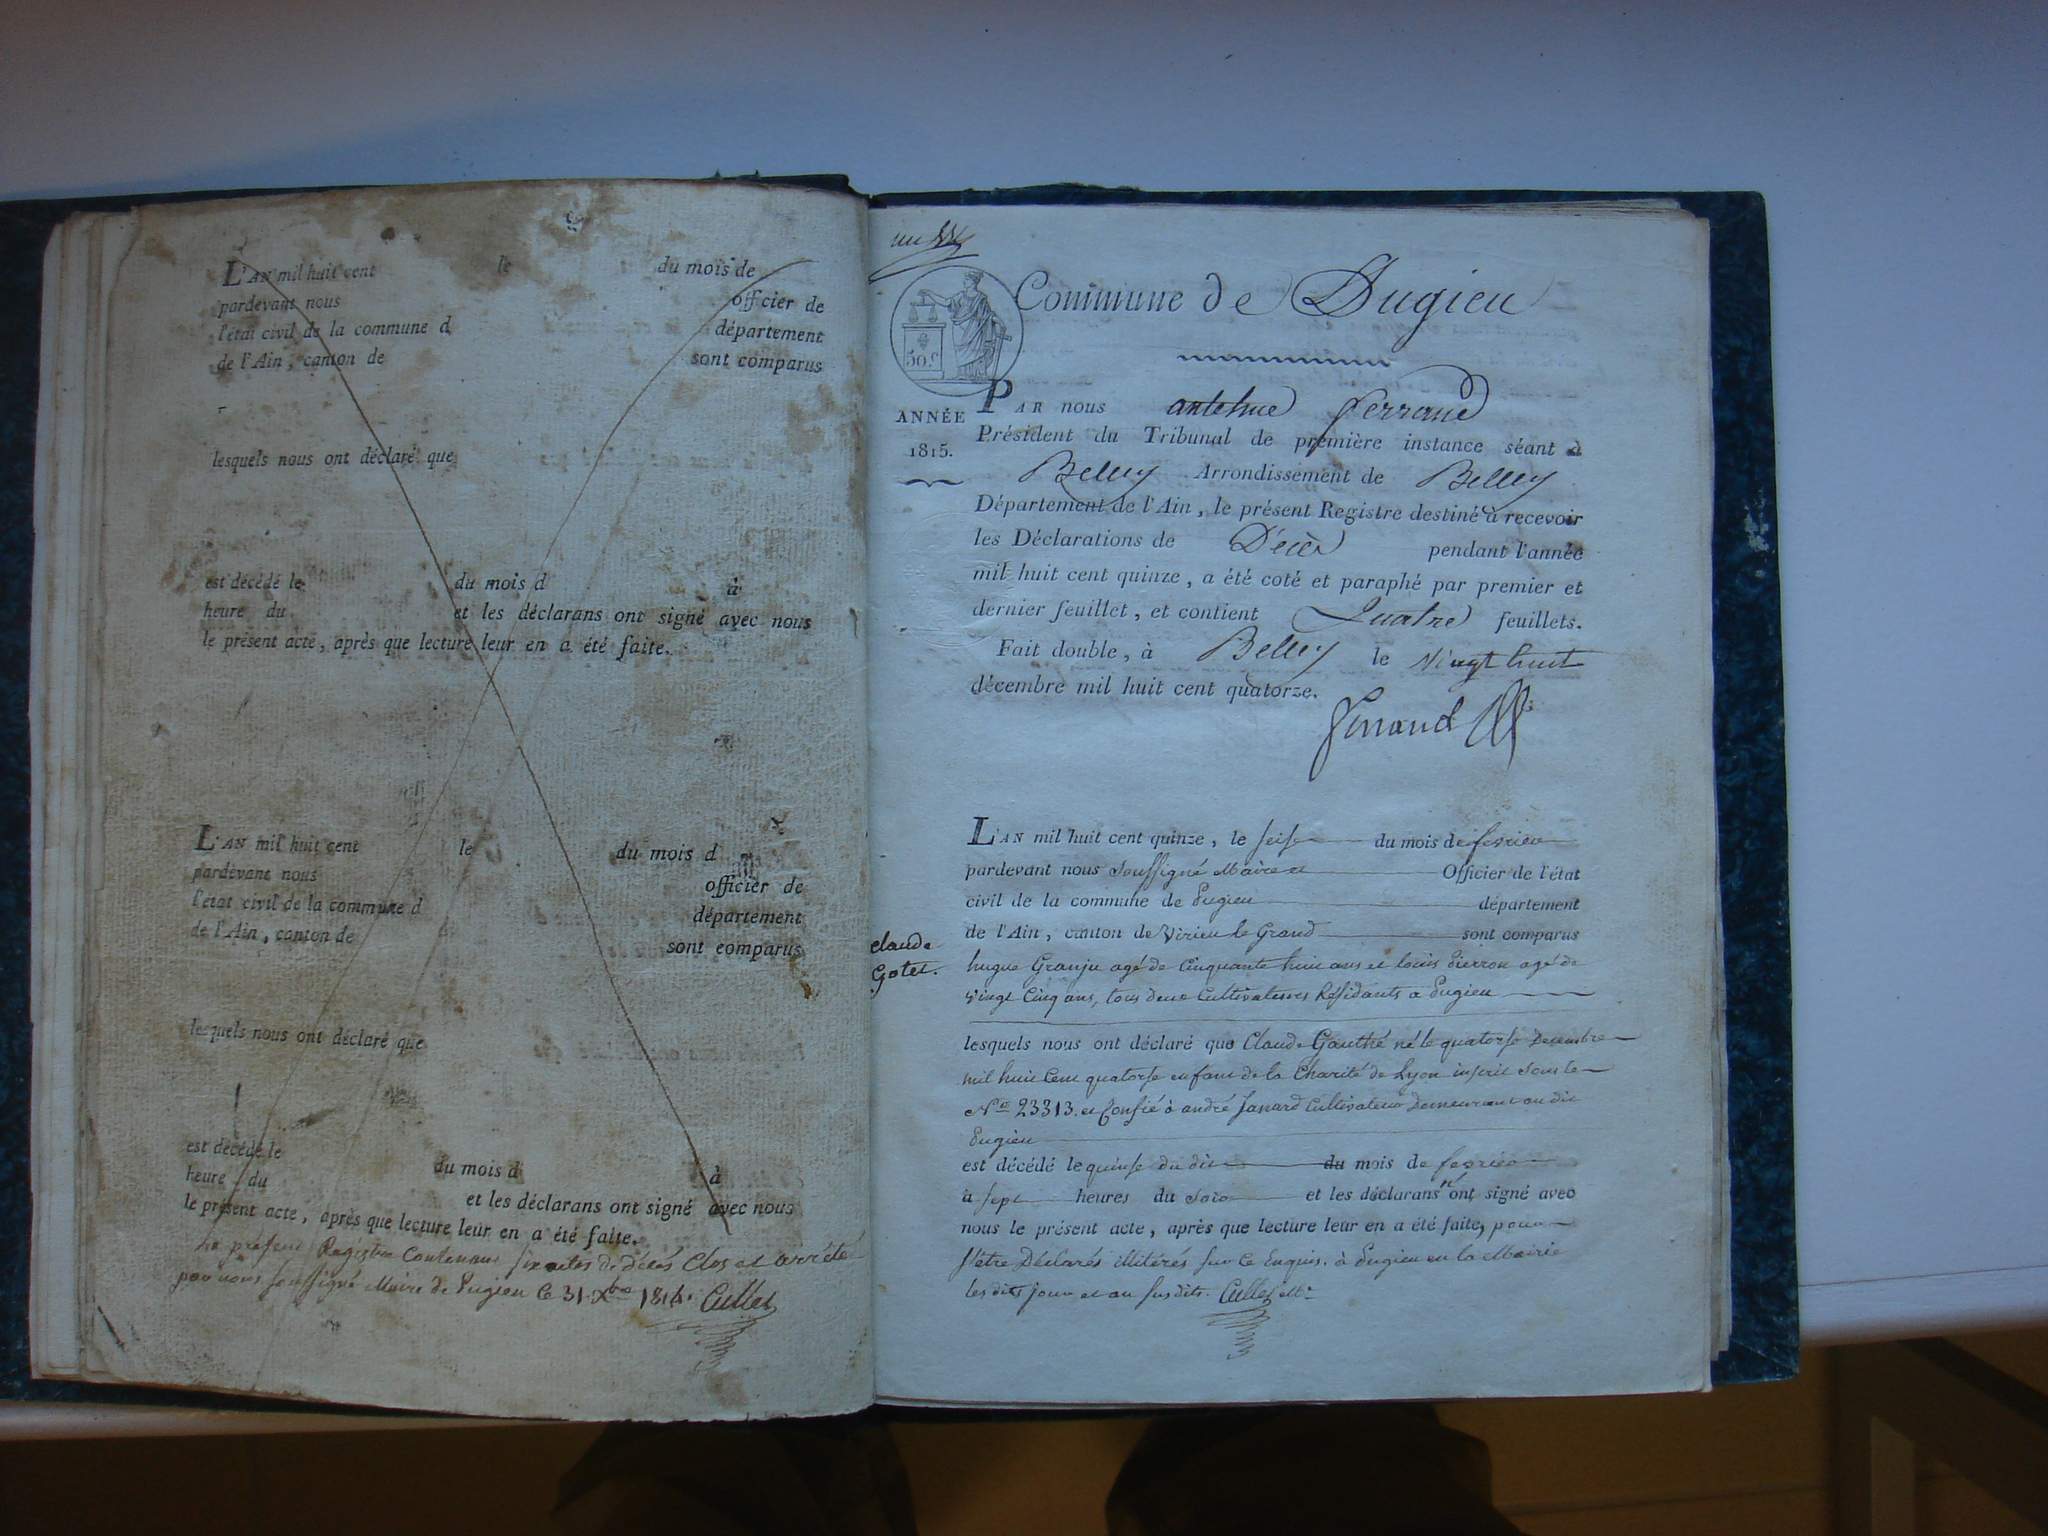 L'AN mil huit cent le du mois de
pardevant nous officier de
l'état civil de la commune d département
de l'Ain, canton de sont comparus
lesquels nous ont déclaré que
est décédé le du mois d à
heure du et les déclarans ont signé avec nous
le présent acte, après que lecture leur en a été faite.
L'AN mil huit cent le du mois d
pardevant nous officier de
l'état civil de la commune d département
de l'Ain, canton de sont comparus
lesquels nous ont déclaré que
est décédé le du mois d à
heure du et les déclarans ont signé avec nous
le présent acte, après que lecture leur en a été faite.
Le présent Registre Contenant six actes de décés Clos et arrété
par nous soussigné Maire de Pugieu le 31 Xbre 1814. Cullet
un
Commune de Pugieu
50.c
ANNÉE
1815.
PAR nous anthelme ferrand
Président du Tribunal de première instance séant à
Belley Arrondissement de Belley
Département de l'Ain, le présent Registre destiné à recevoir
les Déclarations de Décès pendant l'année
mil huit cent quinze, a été coté et paraphé par premier et
dernier feuillet, et contient Quatre feuillets.
Fait double, à Belley le vingt huit
décembre mil huit cent quatorze.
ferrand
L'AN mil huit cent quinze, le seise du mois de fevrier
pardevant nous Soussigné Maire Officier de l'état
civil de la commune de Pugieu département
de l'Ain, canton de Virieu le Grand sont comparus
claude
Gotet.
hugue Granju agé de Cinquante huit ans et louis pierron agé de
vingt Cinq ans, tous deux Cultivateurs Résidants a Pugieu
lesquels nous ont déclaré que Claude Gauthé né le quatorse Decembre
mil huit Cent quatorse enfant de la Charité de Lyon inscrit sous le
No 23313. et Confié à andré Janard Cultivateur Demeurant au dit
Pugieu
est décédé le quinse du dit du mois de fevrier
à sept heures du soir et les déclarans n'ont signé avec
nous le présent acte, après que lecture leur en a été faite, pour
s'etre Déclarés illitérés sur ce Enquis. à Pugieu en la Mairie
les dits jour et an susdits. Cullet